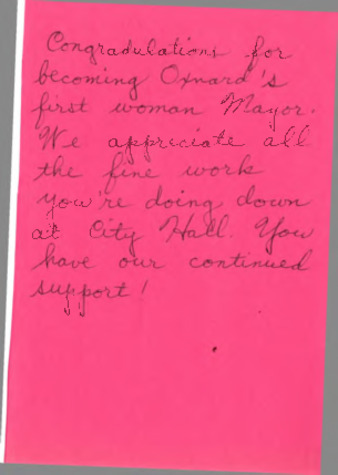 Congradulations for
becoming Oxnard's
first woman Mayor.
We appreciate all
the fine work
you're doing down
at City Hall. You
have our continued
support!